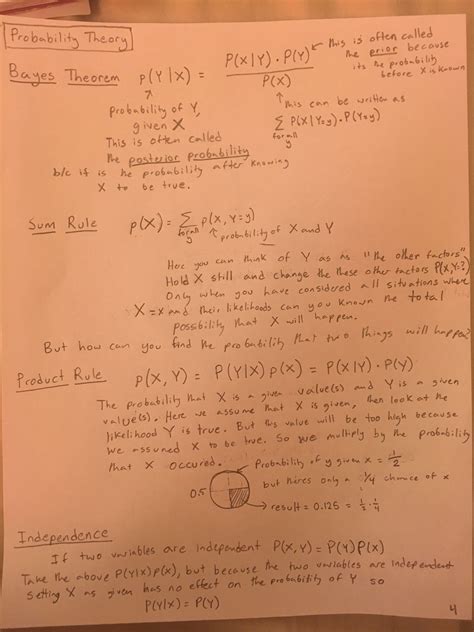 Probability Theory
Bayes Theorem p(Y|X) = P(X|Y) · P(Y) / P(X)
← this is often called
the prior because
its the probability
before X is known
Probability of Y,
given X
This is often called
the posterior probability
b/c it is the probability after knowing
X to be true.
this can be written as
∑ for all y P(X|Y=y)·P(Y=y)
Sum Rule p(X) = ∑ for all y p(X, Y=y)
probability of X and Y
Here you can think of Y as as "the other factors"
Hold X still and change the these other factors P(X,Y=?)
Only when you have considered all situations where
X=x and their likelihoods can you known the total
possibility that X will happen.
But how can you find the probability that two things will happen?
Product Rule p(X, Y) = P(Y|X) p(X) = P(X|Y) · P(Y)
The probability that X is a given value(s) and Y is a given
value(s). Here we assume that X is given, then look at the
likelihood Y is true. But this value will be too high because
we assumed X to be true. So we multiply by the probability
that X occured.
Probability of y given x = 1/2
0.5
but theres only a 1/4 chance of x
→ result = 0.125 = 1/2 · 1/4
Independence
If two variables are independent P(X, Y) = P(Y) P(X)
Take the above P(Y|X) p(X), but because the two variables are independent
setting X as given has no effect on the probability of Y so
P(Y|X) = P(Y)
4